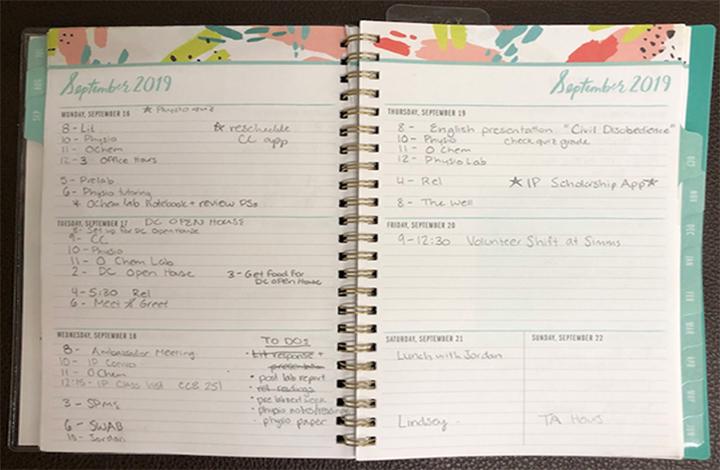 September 2019
MONDAY, SEPTEMBER 16 * Physio quiz
8 - Lit
10 - Physio
11 - OChem
12-3 Office Hours
☆ reschedule
CC app
5 - Prelab
6 - Physio tutoring
* Ochem lab notebook + review PSs
TUESDAY, SEPTEMBER 17 DC OPEN HOUSE
8 - Set up for DC Open House
9 - CC
10 - Physio
11 - O Chem Lab
2 - DC Open House
3 - Get Food For
DC Open House
4-5:30 Rel
6 - Meet & Greet
WEDNESDAY, SEPTEMBER 18
8 - Ambassador Meeting
10 - IP Convo
11 - O Chem
12:15 - IP Class Visit CCB 251
3 - SPMs
6 - SWAB
Jordan
TO DOS
• Lit response +
presentation
• post lab report
• rel readings
• pre lab
• physio notes/readings
• physio paper
September 2019
THURSDAY, SEPTEMBER 19
8 - English presentation "Civil Disobedience"
10 - Physio check quiz grade
11 - O Chem
12 - Physio Lab
4 - Rel ★ IP Scholarship App ★
8 - The Well
FRIDAY, SEPTEMBER 20
9-12:30 Volunteer Shift at Simms
SATURDAY, SEPTEMBER 21
Lunch with Jordan
Lindsey
SUNDAY, SEPTEMBER 22
TA Hours
OCT
NOV
DEC
JAN
FEB
MAR
APR
MAY
JUN